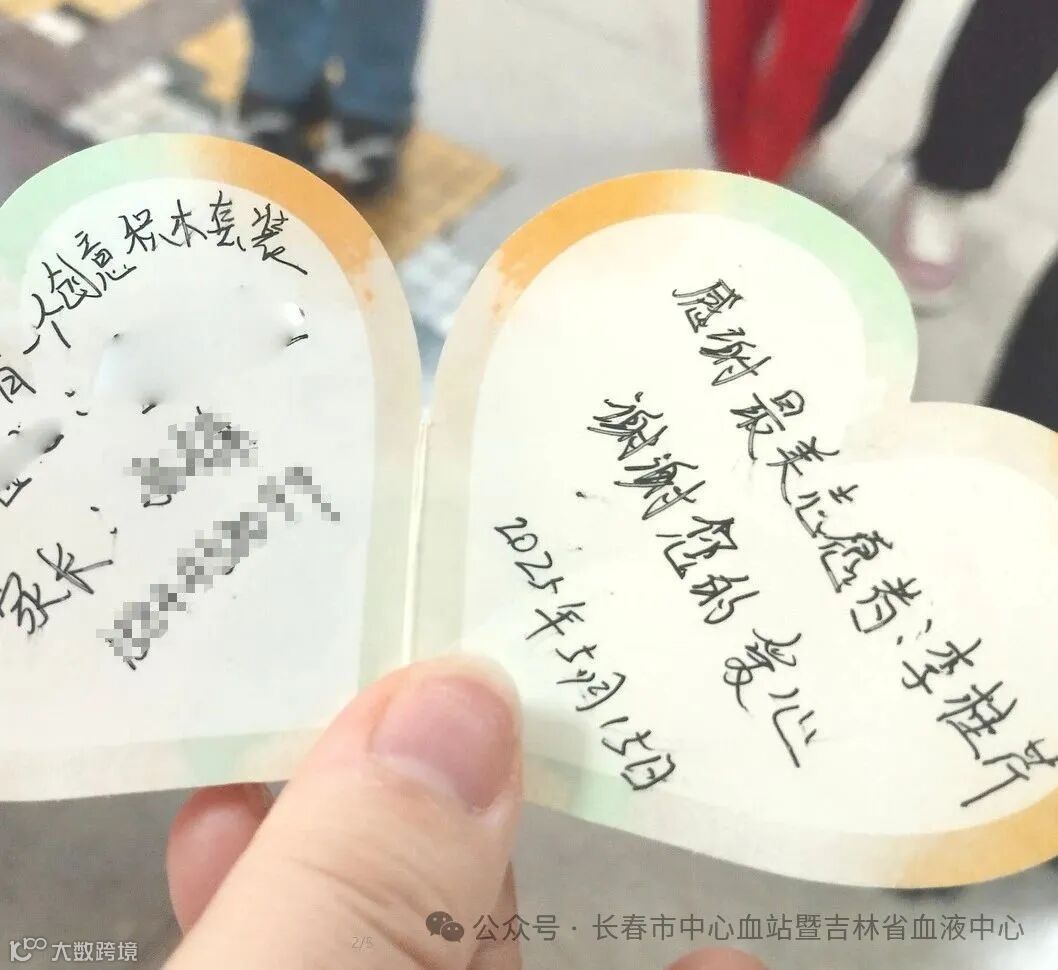 有一个创意积木套装
家长:
感谢最美志愿者:李桂芹
谢谢您的爱心
2025年5月15日
2/5
公众号·长春市中心血站暨吉林省血液中心
大数跨境